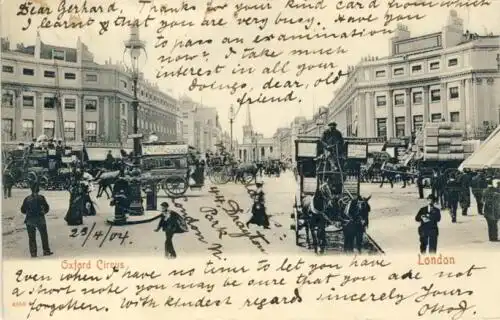 Dear Gerhard, Thanks for your kind card from which
I learnt that you are very busy. Have you
to pass an examination
now? I take much
interest in all your
doings, dear, old
friend.
29/4/04
London
Park
Oxford Circus
London
Even when I have no time to let you have
a short note you may be sure that you are not
forgotten. With kindest regards sincerely Yours
Otto J.